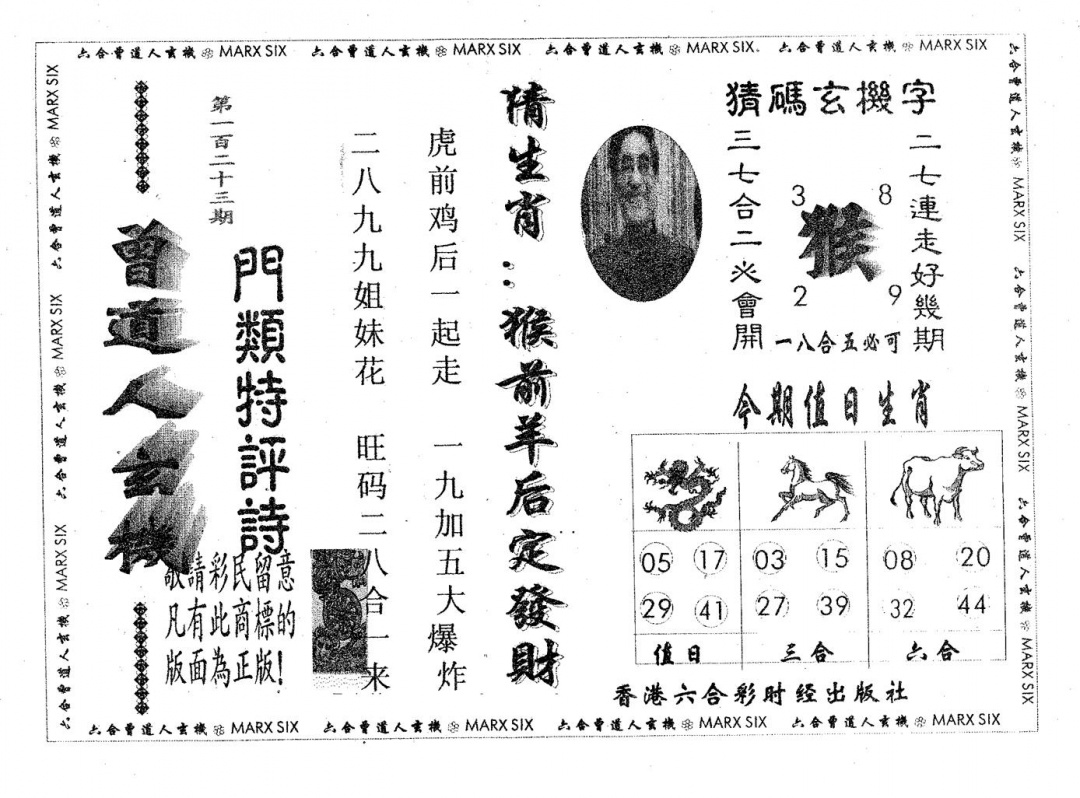 六合曾道人玄機 MARX SIX 六合曾道人玄機 MARX SIX 六合曾道人玄機 MARX SIX 六合曾道人玄機 MARX SIX
六合曾道人玄機 MARX SIX 六合曾道人玄機 MARX SIX 六合曾道人玄機 MARX SIX
曾道人玄機
第一百二十三期
門類特評詩
敬請彩民留意
凡有此商標的
版面為正版!
虎前鸡后一起走 一九加五大爆炸
二八九九姐妹花 旺码二八合一来
猜生肖:猴前羊后定發財
猜碼玄機字
二七連走好幾期
三七合二必會開
3 8
猴
2 9
一八合五必可
今期值日生肖
05 17 03 15 08 20
29 41 27 39 32 44
值日 三合 六合
香港六合彩财经出版社
六合曾道人玄機 MARX SIX 六合曾道人玄機 MARX SIX 六合曾道人玄機 MARX SIX
六合曾道人玄機 MARX SIX 六合曾道人玄機 MARX SIX 六合曾道人玄機 MARX SIX 六合曾道人玄機 MARX SIX